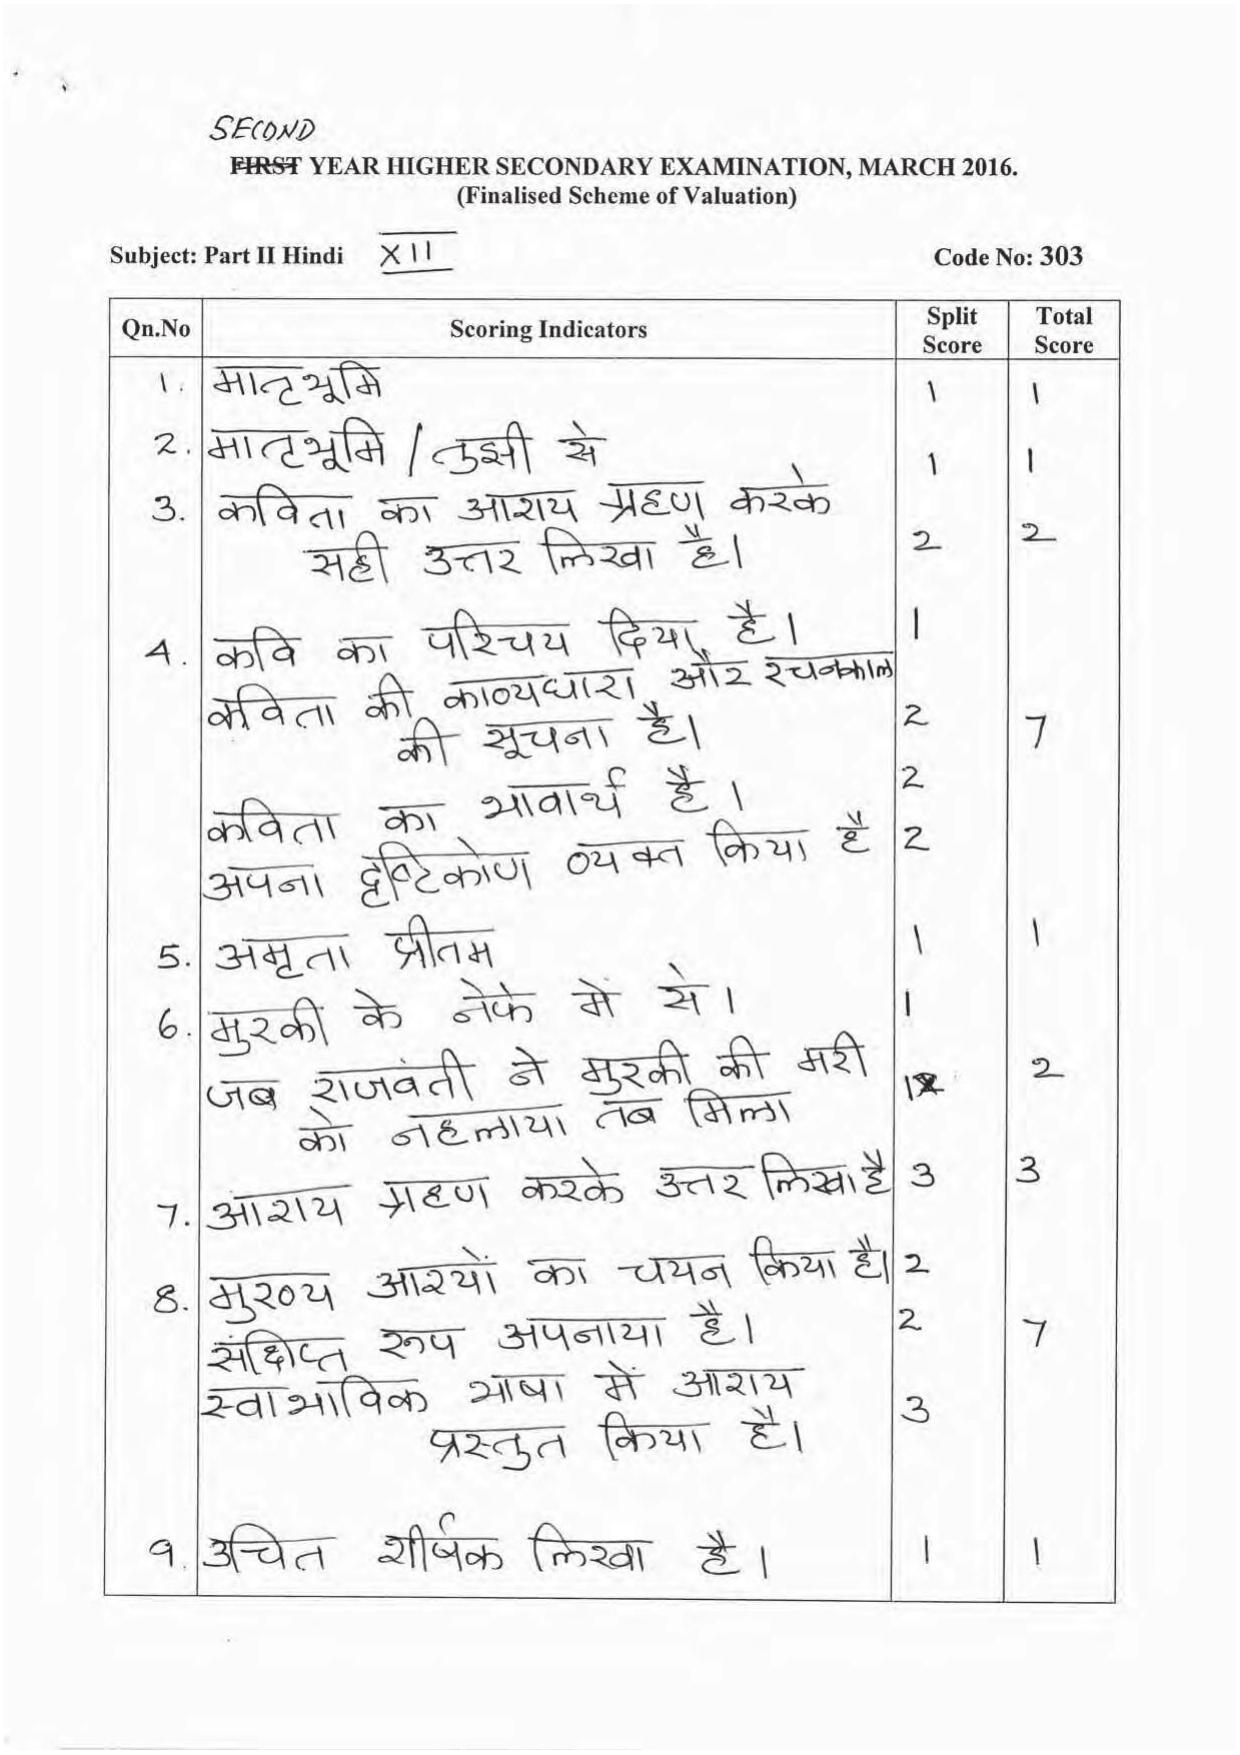 SECOND
FIRST YEAR HIGHER SECONDARY EXAMINATION, MARCH 2016.
(Finalised Scheme of Valuation)
Subject: Part II Hindi XII Code No: 303
Qn.No Scoring Indicators Split Score Total Score
1. मातृभूमि 1 1
2. मातृभूमि / तुझी से 1 1
3. कविता का आशय ग्रहण करके
सही उत्तर लिखा है। 2 2
4. कवि का परिचय दिया है। 1
कविता की काव्यधारा और रचनकाल
की सूचना है। 2 7
कविता का भावार्थ है। 2
अपना दृष्टिकोण व्यक्त किया है 2
5. अमृता प्रीतम 1 1
6. मुरकी के नेफे में से। 1
जब राजवंती ने मुरकी की मरी 1 2
को नहलाया तब मिला
7. आशय ग्रहण करके उत्तर लिखा है 3 3
8. मुख्य आशयों का चयन किया है। 2
संक्षिप्त रूप अपनाया है। 2 7
स्वाभाविक भाषा में आशय
प्रस्तुत किया है। 3
9. उचित शीर्षक लिखा है। 1 1